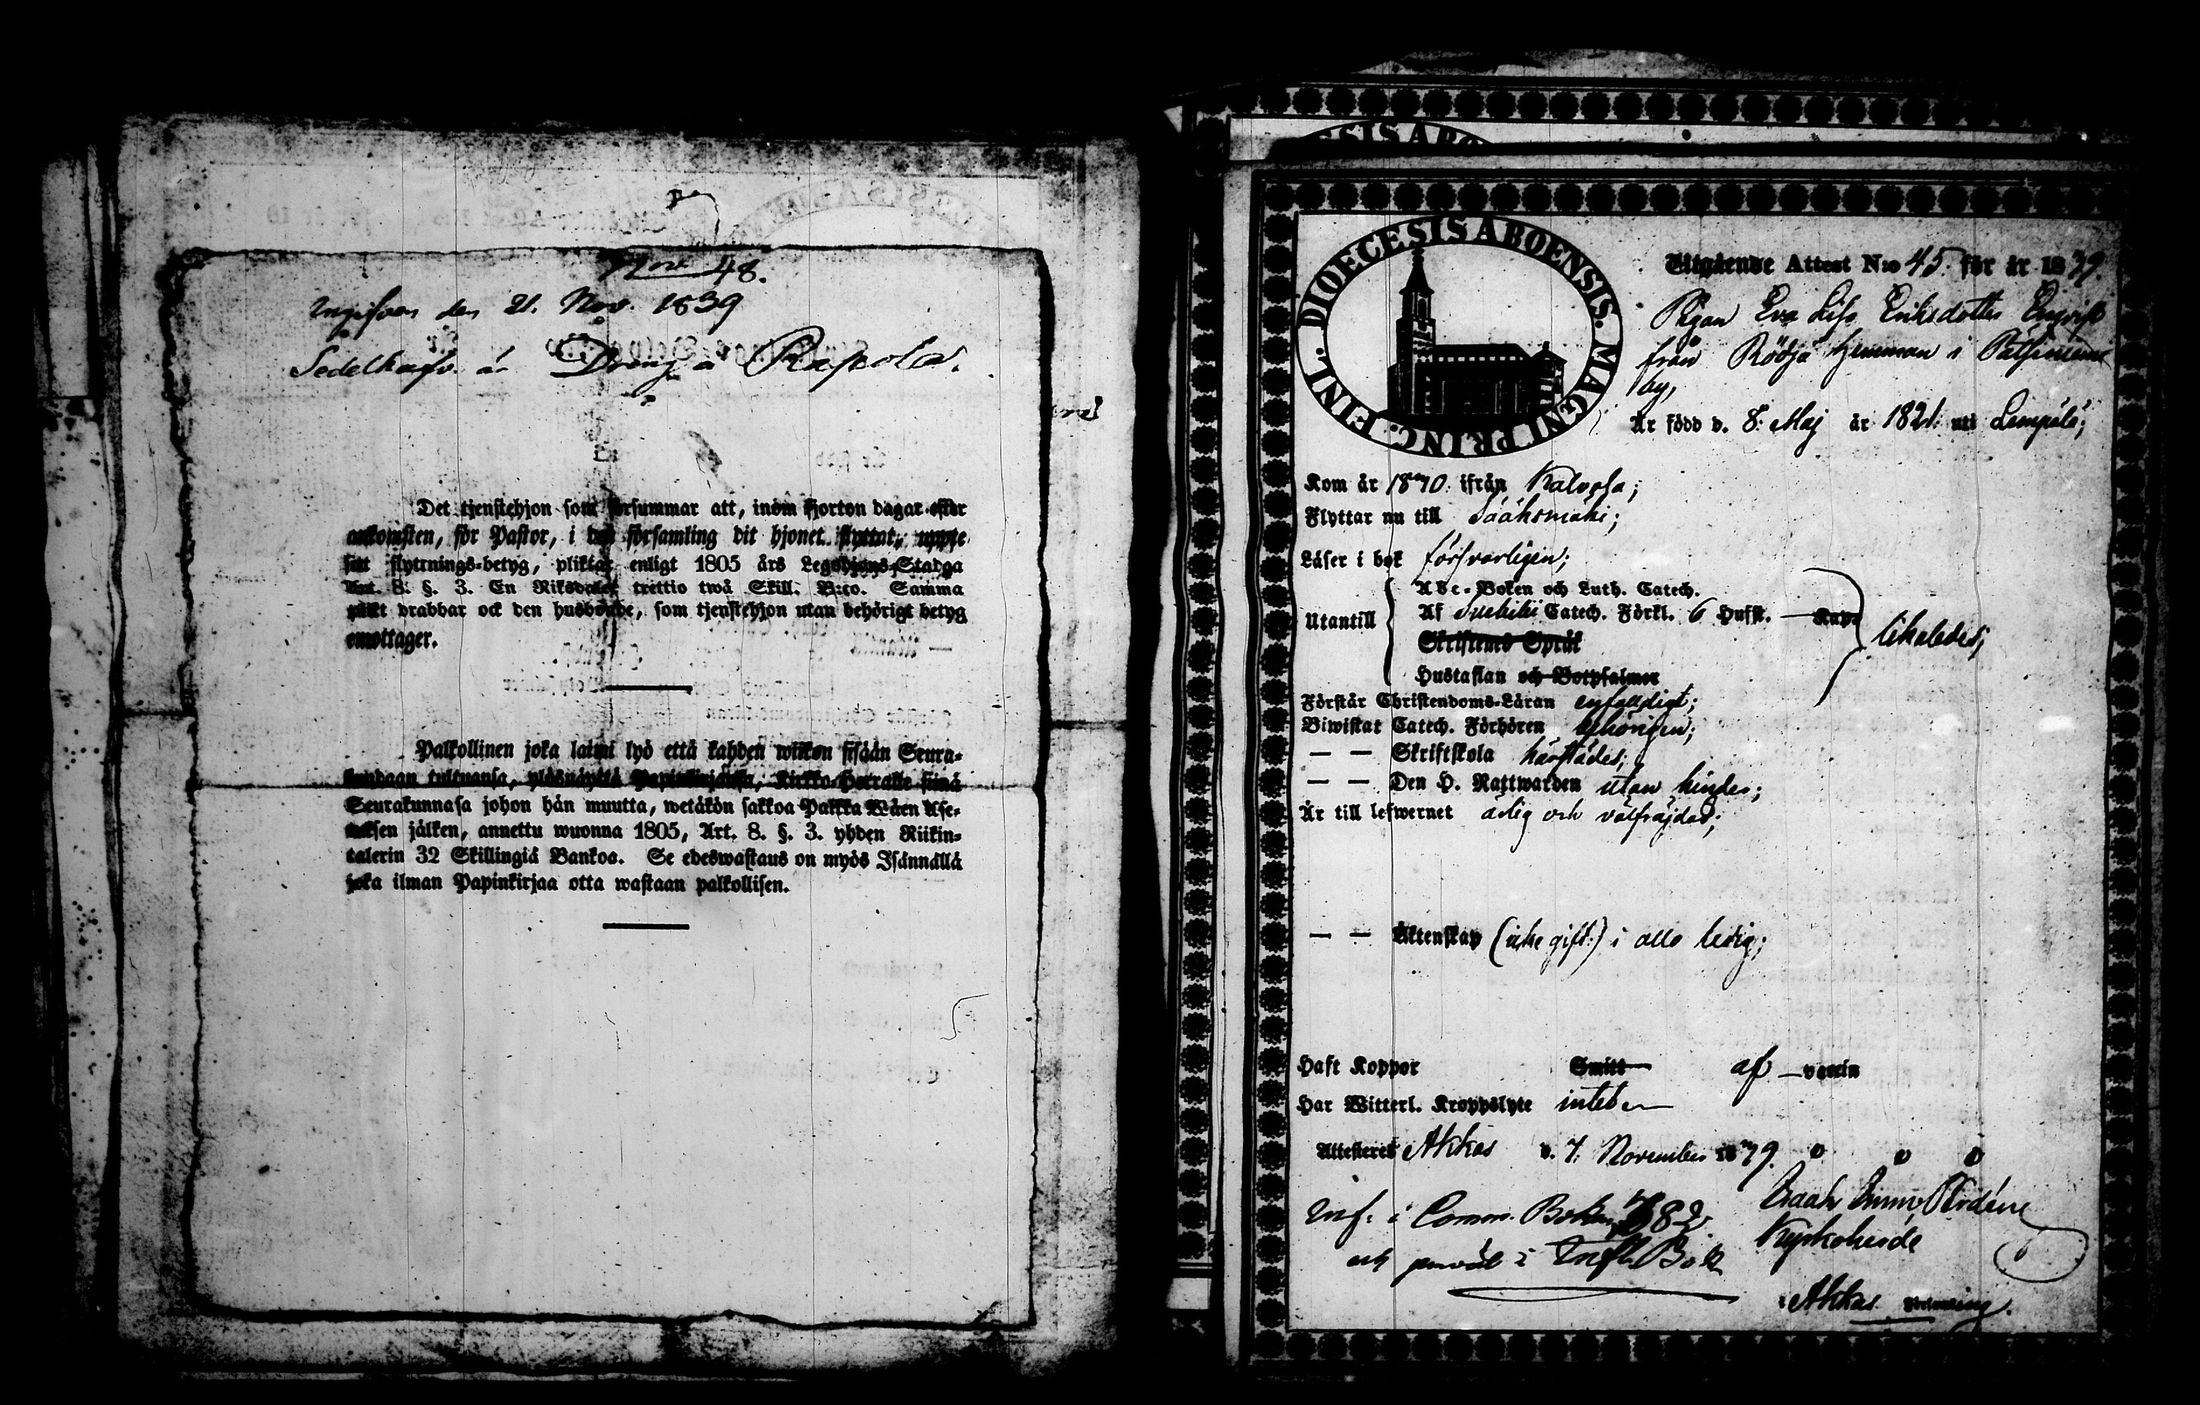 N:ro 48.
Ingifven den 21. Nov. 1839
Sedelhafv. är Dräng å Rapola.
Det tjenstehjon som försummar att, inom fjorton dagar efter
ankomsten, för Pastor, i den församling dit hjonet flyttat, uppte
sitt flyttnings-betyg, pliktar enligt 1805 års Legohjons-Stadga
Art. 8. §. 3. En Riksdaler trettio twå Skill. B:co. Samma
plikt drabbar ock den husbonde, som tjenstehjon utan behörigt betyg
emottager.
Palkollinen joka laimi lyö että kahden wiikon sisään Seura-
kundaan tultuansa, ylösnäyttä Papinkirjansa, Kirkko-Herralle siinä
Seurakunnasa johon hän muutta, wetäkön sakkoa Palkka Wäen Ase-
tuksen jälken, annettu wuonna 1805, Art. 8. §. 3. yhden Riikin-
talerin 32 Skillingiä Bankoa. Se edeswastaus on myös Isännällä
joka ilman Papinkirjaa otta wastaan palkollisen.
DIOECESIS ABOENSIS. MAGNI PRINC. FINL.
Utgående Attest N:o 45. för år 1839.
Pigan Eva Lisa Eriksdotter
från Rödjä hemman i
by,
Är född d. 8. Maj år 1821. uti Lempälä;
Kom år 1870 ifrån Kalvola;
Flyttar nu till Sääksmäki;
Läser i bok försvarligen;
Utantill
Abc-Boken och Luth. Catech.
Af Svebilii Catech. Förkl. 6 Hufst. — Kap.
Skriftenes Språk
Hustaflan och Botpsalmer
likaledes;
Förstår Christendoms-Läran enfaldigt;
Biwistat Catech. Förhören behörigen;
— — Skriftskola härstädes;
— — Den H. Nattwarden utan hinder;
Är till lefwernet ärlig och välfräjdad;
— — Äktenskap (icke gift) i allo ledig;
Haft Koppor Smitt— af — vaccin
Har Witterl. Kroppslyte intet
Attesteras Akkas d. 7. November 1879.
Inf. i Comm. Boken 82
och i Infl. Bok
Isaak Perdén
Kyrkoherde
i Akkas